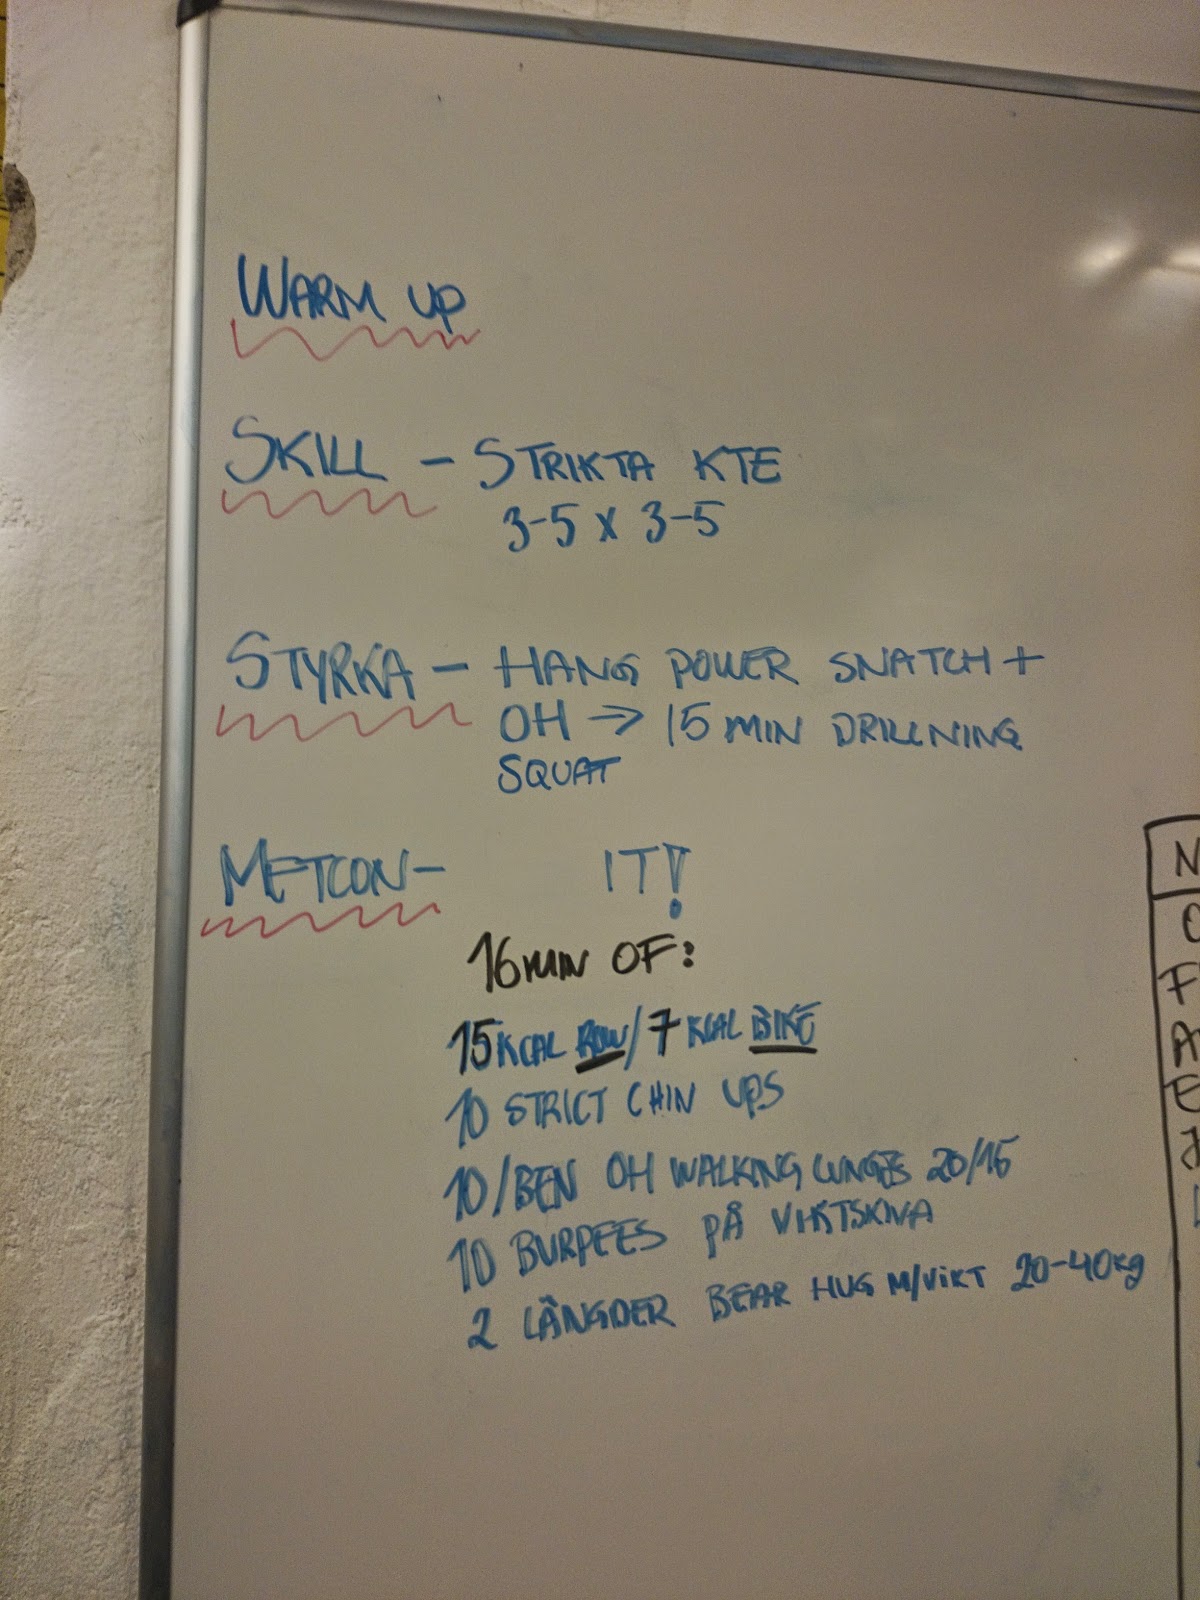 WARM UP
SKILL - STRIKTA KTE
3-5 x 3-5
STYRKA - HANG POWER SNATCH +
OH → 15 MIN DRILLNING
SQUAT
METCON- IT!
16 MIN OF:
15 KCAL ROW/7 KCAL BIKE
10 STRICT CHIN UPS
10/BEN OH WALKING LUNGES 20/15
10 BURPEES PÅ VIKTSKIVA
2 LÄNGDER BEAR HUG M/VIKT 20-40kg
N